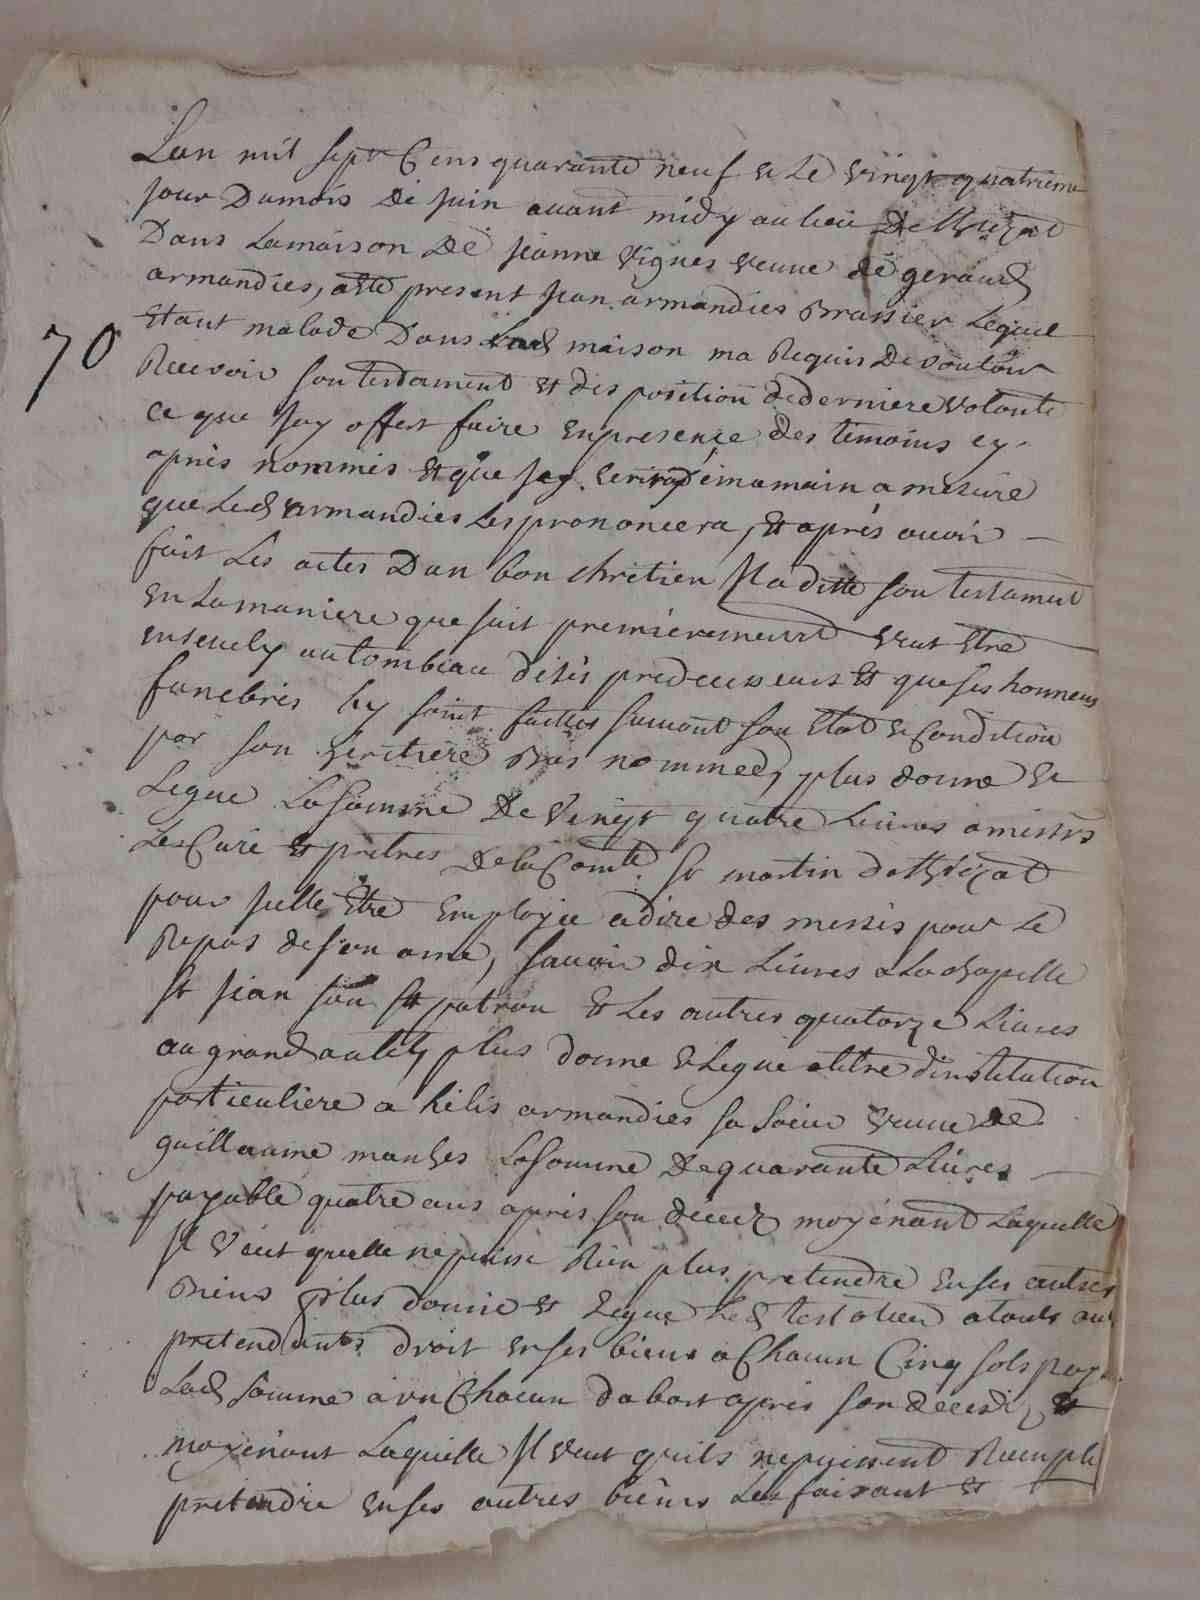 Lan mil sept Cens quarante neuf & Le vingt quatrieme
jour Dumois de juin avant midy au lieu De Thiezat
Dans Lamaison De jeanne vignes veuve de geraud
armandies, a esté present jean armandies Brassier Lequel
Etant malade Dans Lad maison ma Requis De vouloir
70
Recevoir son testament et disposition de derniere volonté
Ce que jay offert faire en presence des temoins cy
apres nommés et que jay ecrit de mamain a mesure
que Led armandies Les prononcera, et aprés avoir
fait Les actes Dun bon chretien Il a ditté son testament
En Lamaniere que suit premierement veut etre
ensevely au tombeau de ses predecesseurs et que ses honneurs
funebres luy soint faittes suivant son Etat & Condition
par son heritiere Bas nommeé, plus donne &
Legue La Somme De vingt quatre Livres a messrs
Les Curé et pretres De la Comté St martin de Thiezat
pour jcelle Etre Employée a dire des messes pour Le
Repos de son ame, savoir dix Livres a La chapelle
St jean son St patron et Les autres quatorze Livres
au grand autel, plus donne & Legue a titre d'institution
particuliere a helis armandies sa soeur veuve De
guillaume manhes La Somme De quarante Livres
payable quatre ans apres son décéz moyénant Laquelle
Il veut quelle ne puisse Rien plus pretendre En ses autres
Biens plus donne et Legue Led testateur a touts au
pretendants droit En ses biens a Chacun Cinq sols pay
Lad somme a un Chacun dabort apres son décéz et
moyénant Laquelle Il veut quils ne puissent Rien plu
pretendre En ses autres biens Les faisant et